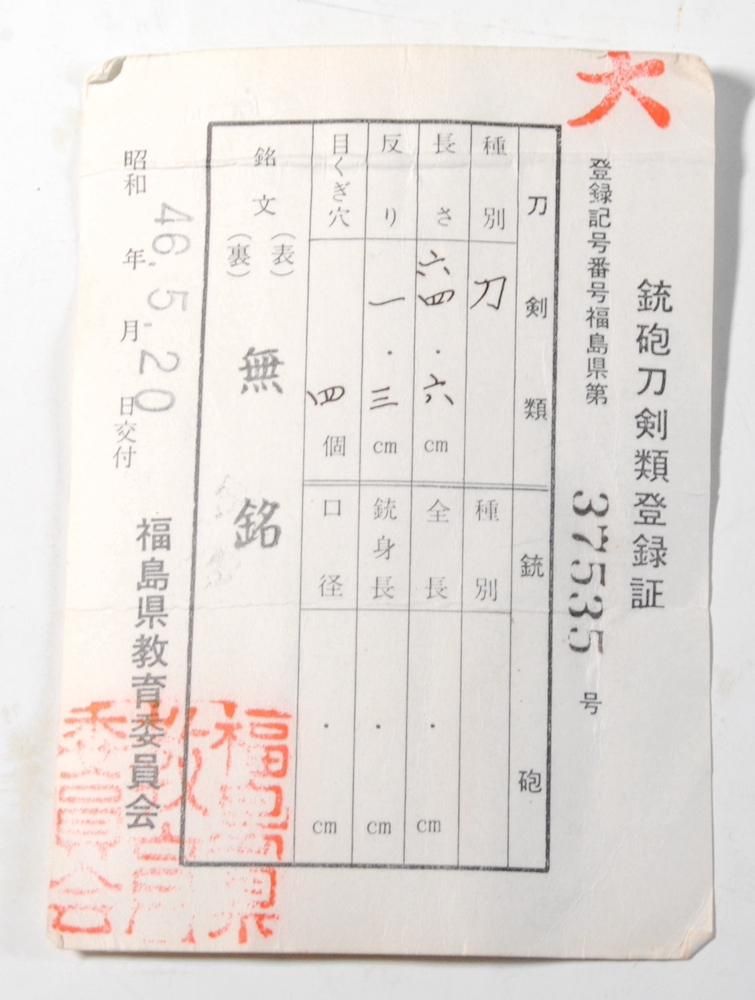 大
銃砲刀剣類登録証
登録記号番号福島県第 37535 号
刀剣類
種別 刀
長さ 六四.六cm
反り 一.三cm
目くぎ穴 四個
銃砲
種別
全長 . cm
銃身長 . cm
口径 . cm
銘文 (表) (裏) 無銘
昭和 46年 5.月 20日交付
福島県教育委員会
福島県
教育
委員会